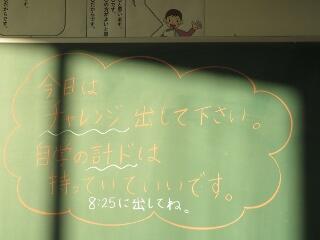 今日は
チャレンジ出して下さい。
自学の計ドは
持っていていいです。
8:25に出してね。